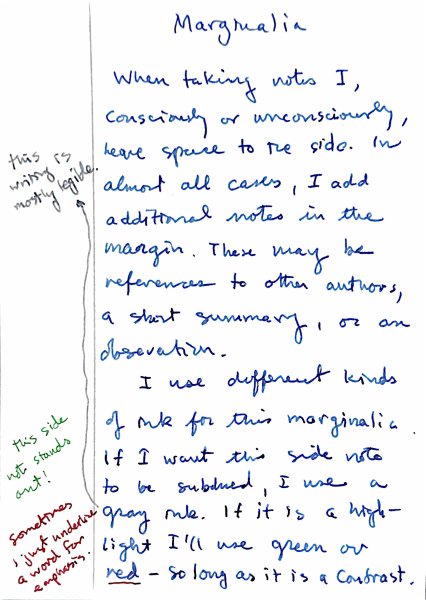 Marginalia
When taking notes I,
consciously or unconsciously,
leave space to the side. In
almost all cases, I add
additional notes in the
margin. These may be
references to other authors,
a short summary, or an
obsevation.
I use different kinds
of ink for this marginalia.
If I want this side note
to be subdued, I use a
gray ink. If it is a high-
light I'll use green or
red - so long as it is a contrast.
this
writing is
mostly legible.
this side
note stands
out!
sometimes
I just underline
a word for
emphasis.